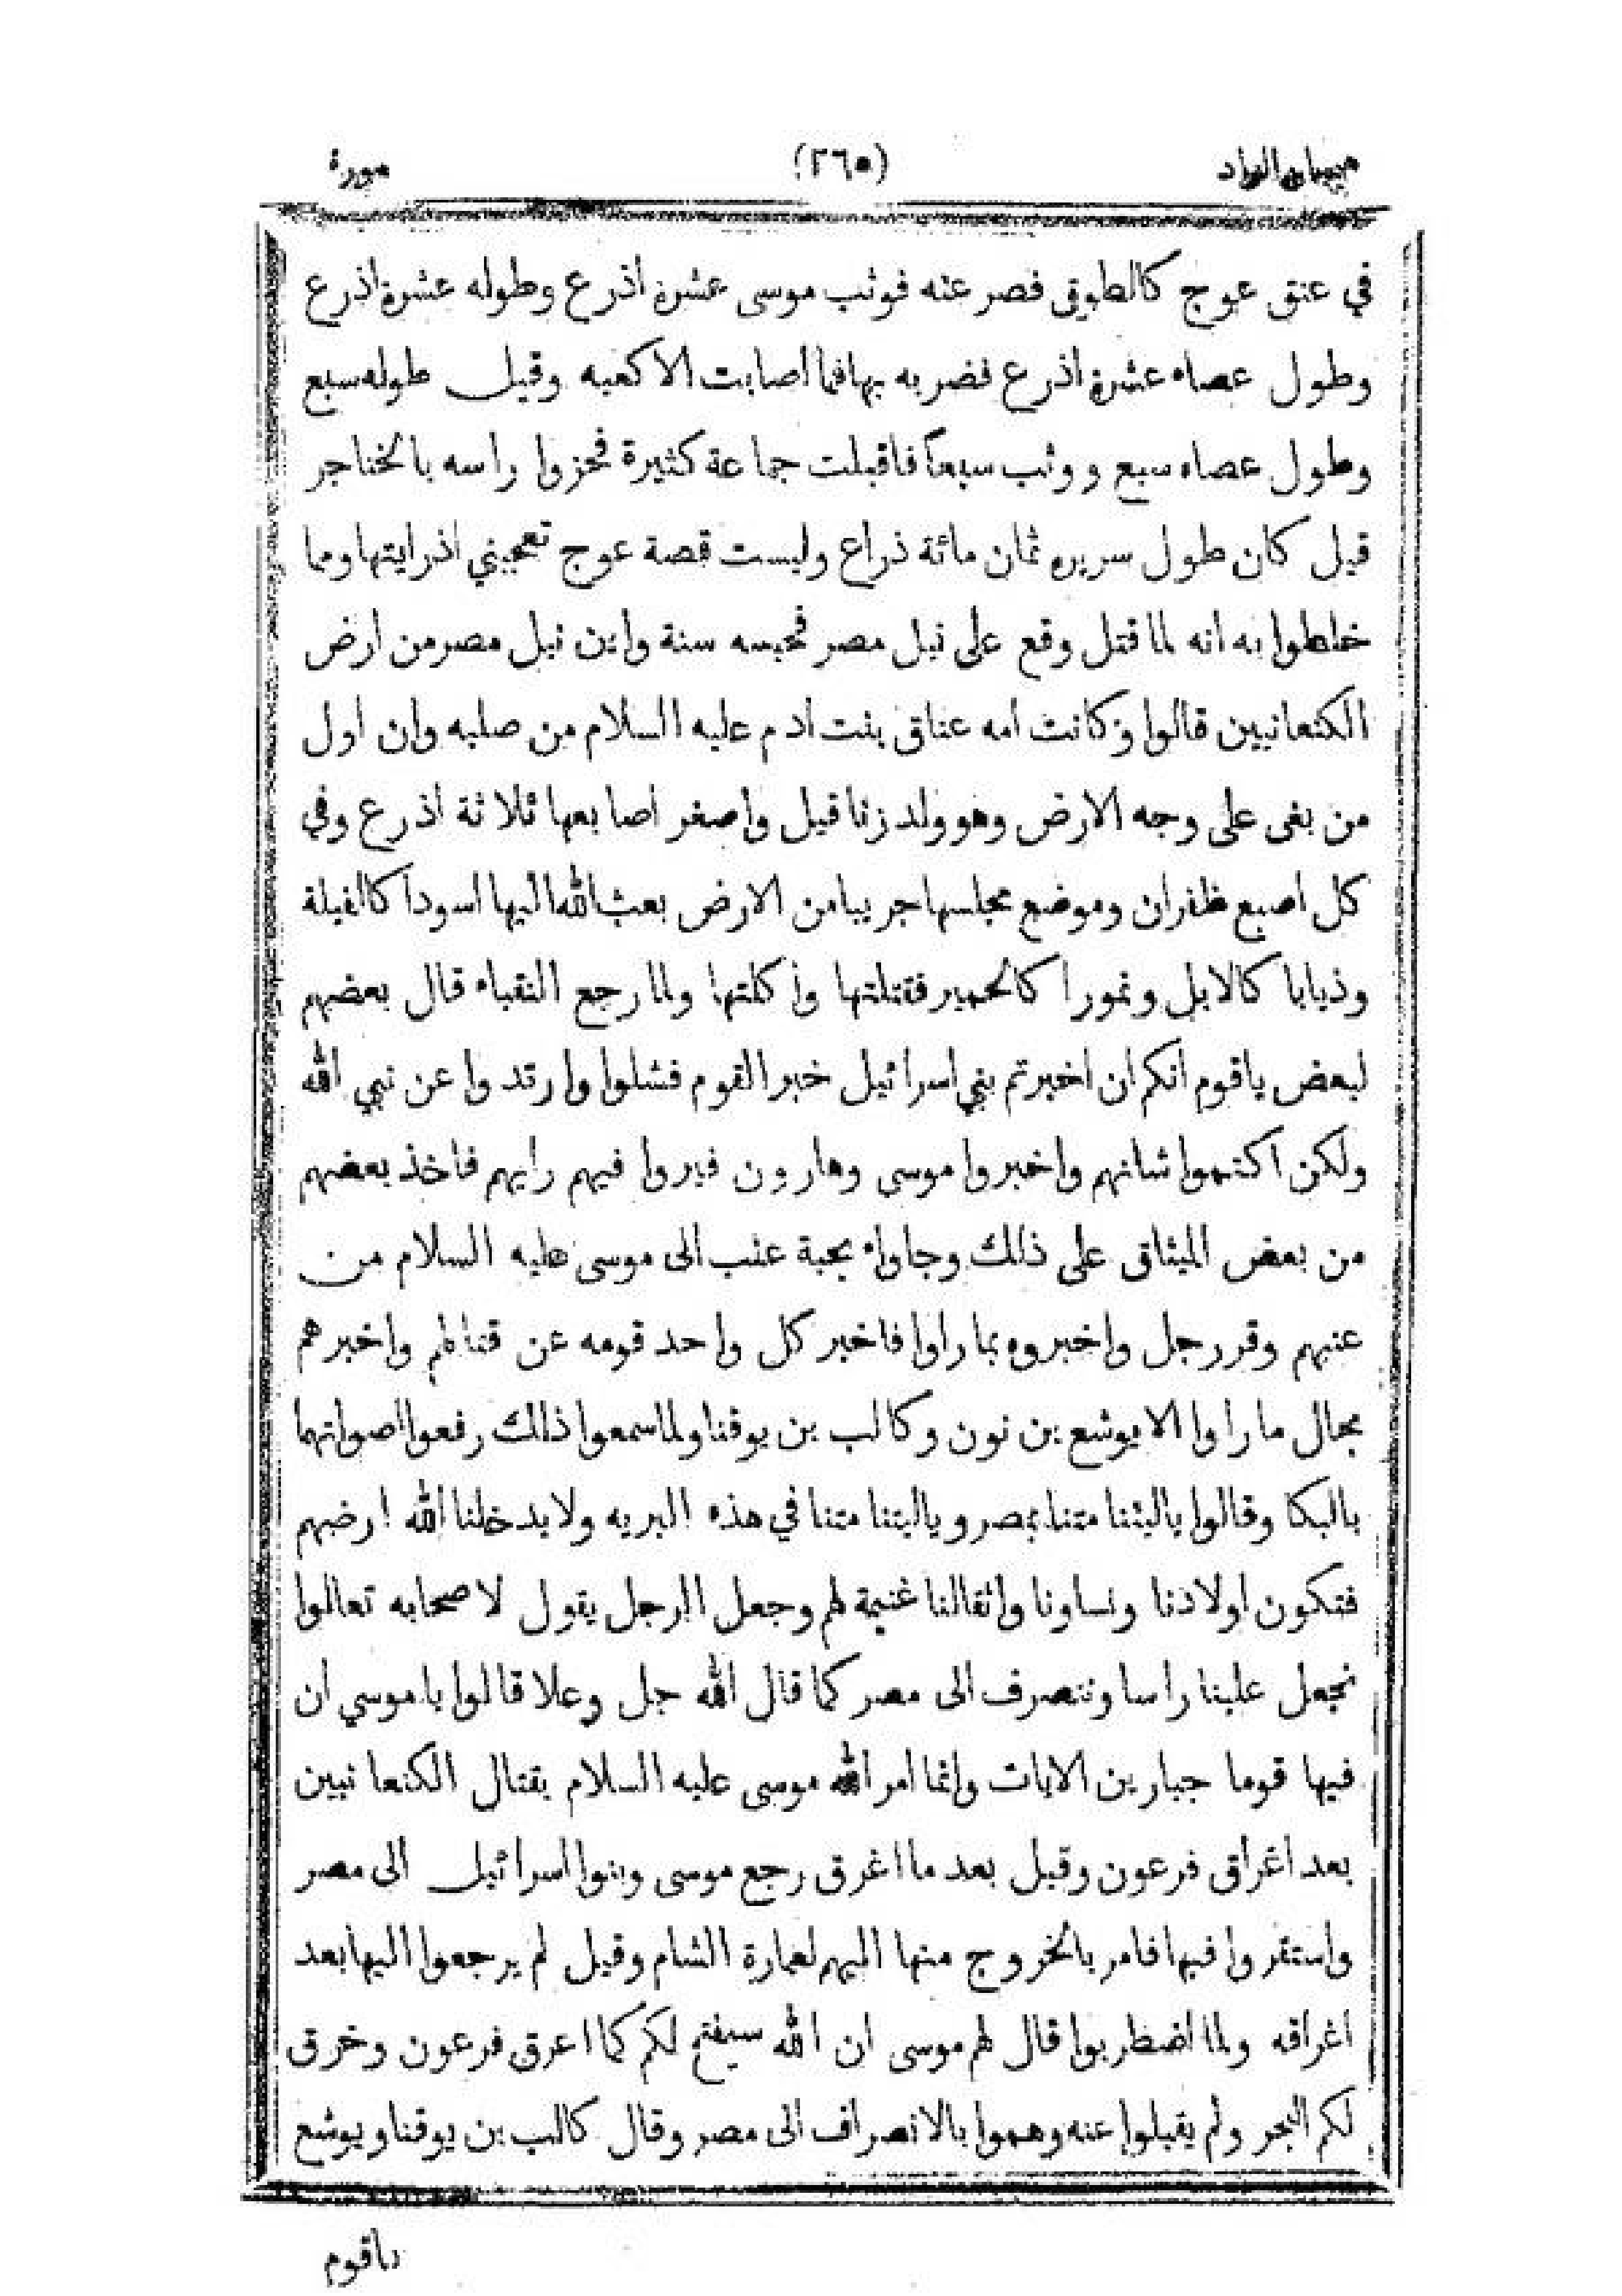 هيميان الزاد (٢٦٥) سورة
في عنق عوج كالطوق فصر عنه فوثب موسى عشرة اذرع وطوله عشرة اذرع
وطول عصاه عشرة اذرع فضربه بها فما اصابت الا كعبه وقيل طوله سبع
وطول عصاه سبع ووثب سبعاً فاقبلت جماعة كثيرة فحزوا راسه بالخناجر
قيل كان طول سريره ثمان مائة ذراع وليست قصة عوج تعجبني اذ رايتها ومما
خلطوا به انه لما قتل وقع على نيل مصر فحبسه سنة واين نيل مصر من ارض
الكنعانيين قالوا وكانت امه عناق بنت ادم عليه السلام من صلبه وان اول
من بغى على وجه الارض وهو ولد زنا قيل واصغر اصابعها ثلاثة اذرع وفي
كل اصبع ظفران وموضع مجلسها جريبا من الارض بعث الله اليها اسوداً كالفيلة
وذيابا كالابل ونمورا كالحمير فقتلتها واكلتها ولما رجع النقباء قال بعضهم
لبعض ياقوم انكم ان اخبرتم بني اسرائيل خبر القوم فشلوا وارتدوا عن نبي الله
ولكن اكتموا شانهم واخبروا موسى وهارون فيروا فيهم رايهم فاخذ بعضهم
من بعض الميثاق على ذلك وجاواء بحبة عنب الى موسى عليه السلام من
عنبهم وقر رجل واخبروه بما راوا فاخبر كل واحد قومه عن قتالهم واخبرهم
بحال ما راوا الا يوشع بن نون وكالب بن يوفنا ولما سمعوا ذلك رفعوا اصواتهما
بالبكا وقالوا ياليتنا متنا بمصر وياليتنا متنا في هذه البريه ولا يدخلنا الله ارضهم
فتكون اولادنا ونساونا واثقالنا غنيمة لهم وجعل الرجل يقول لاصحابه تعالوا
نجعل علينا راسا وننصرف الى مصر كما قال الله جل وعلا قالوا ياموسى ان
فيها قوما جبارين الايات وانما امر الله موسى عليه السلام بقتال الكنعانيين
بعد اغراق فرعون وقيل بعد ما اغرق رجع موسى وبنوا اسرائيل الى مصر
واستقروا فيها فامر بالخروج منها اليهم لعمارة الشام وقيل لم يرجعوا اليها بعد
اغراقه ولما اضطربوا قال لهم موسى ان الله سيفتح لكم كما اعرق فرعون وخرق
لكم البحر ولم يقبلوا عنه وهموا بالانصراف الى مصر وقال كالب بن يوقنا ويوشع
ياقوم